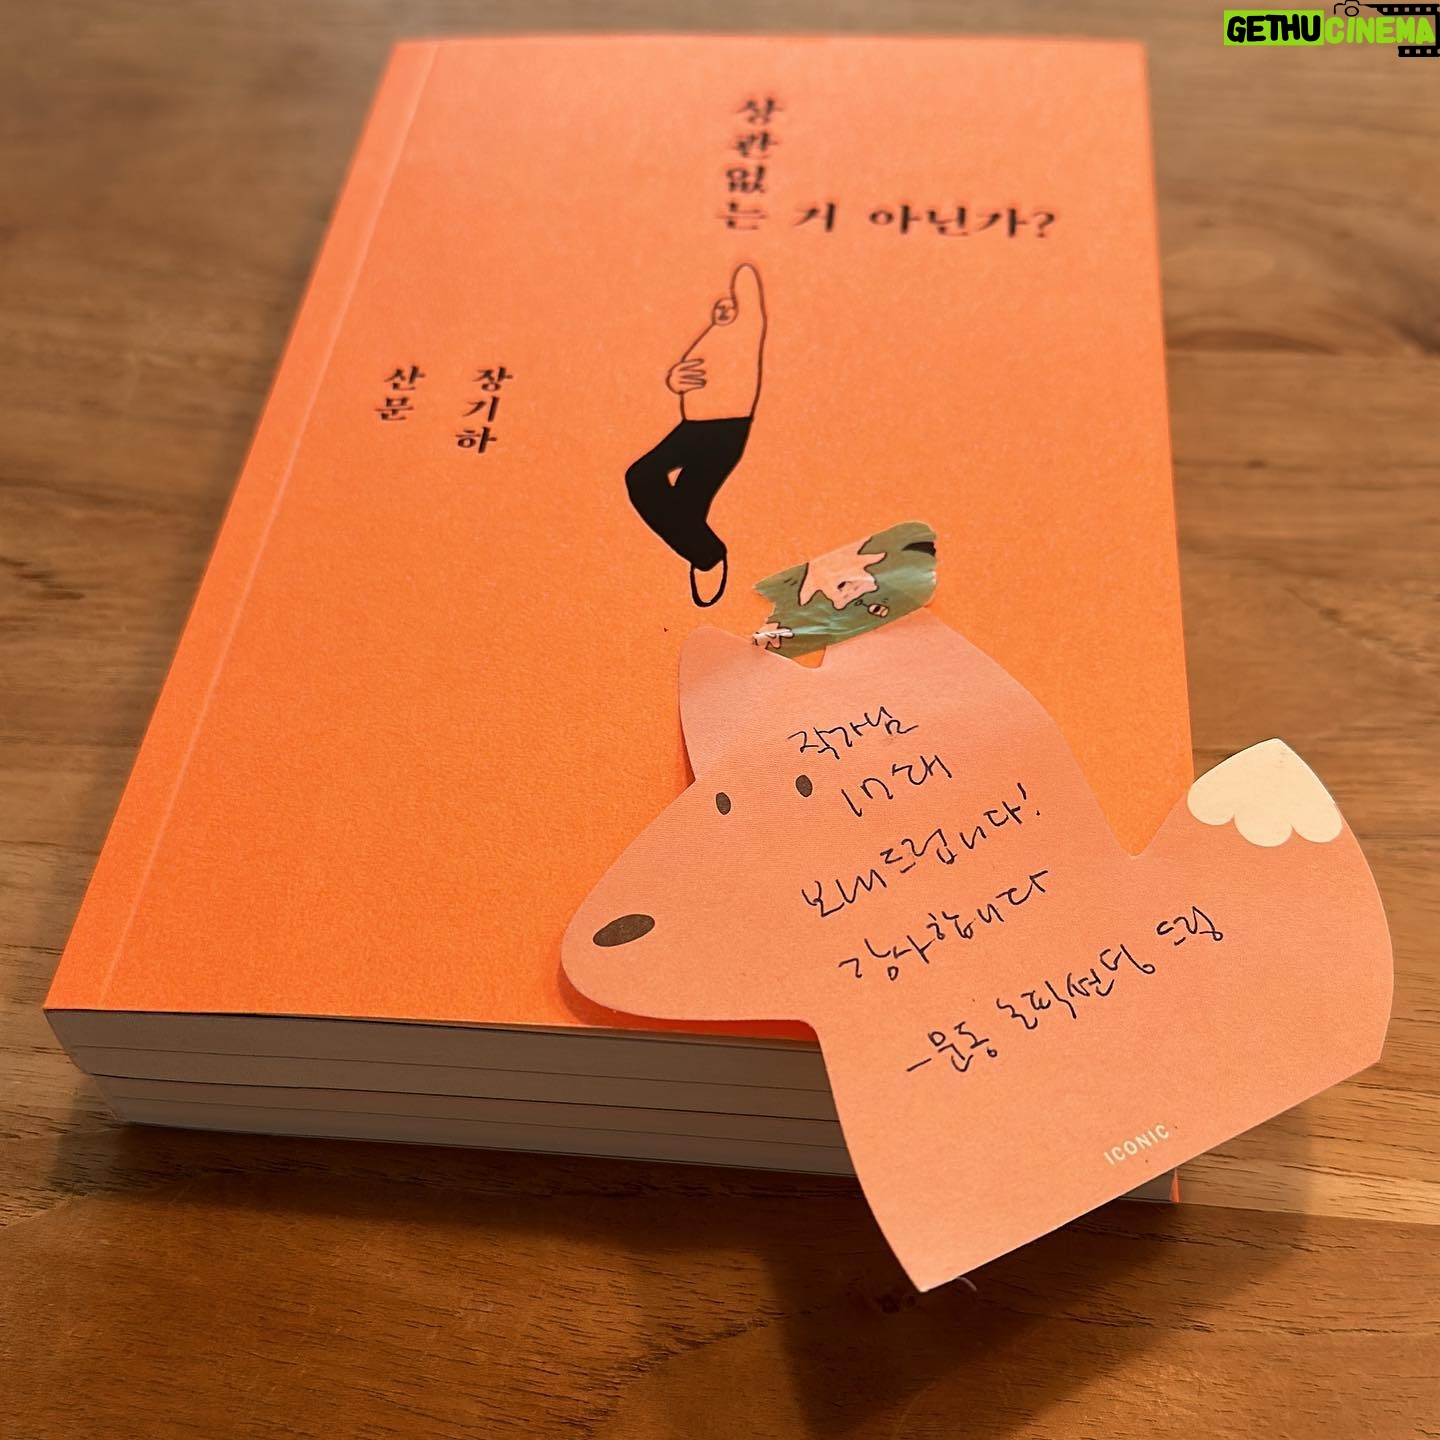 GETHUCINEMA
상관없는 거 아닌가?
장기하
산문
작가님
17쇄
보내드립니다!
감사합니다
-문동 문학선영 드림
ICONIC